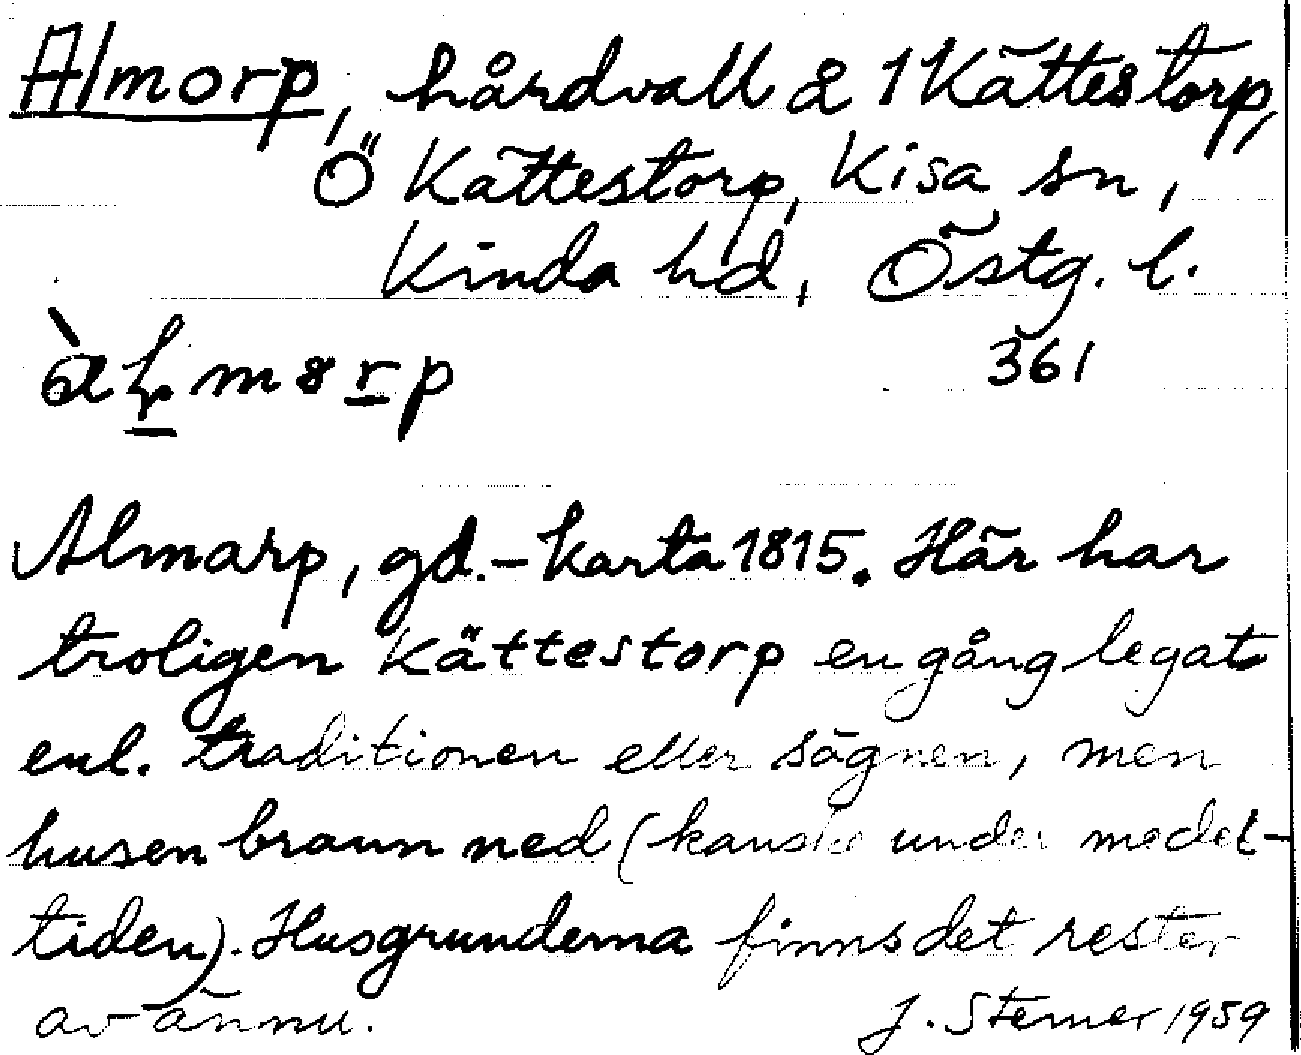 Almorp, hårdvall å 1 Kättestorp,
Ö Kättestorp, Kisa sn,
Kinda hd, Östg. l.
361
Almarp, gd.-karta 1815. Här har
troligen Kättestorp en gång legat
enl. traditionen eller sägnen, men
husen brann ned (kanske under medel-
tiden). Husgrunderna finns det rester
av ännu.
J. Sterner 1959